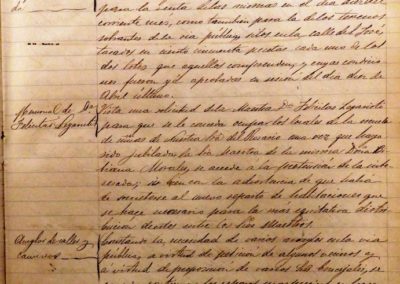 para la venta de las mismas en el dia doce del
corriente mes, como tambien para la de los terrenos
sobrantes de la via pública, sitos en la calle del José
tasados en ciento cincuenta pesetas cada uno de los
dos lotes que aquellos comprenden, y cuyas condicio-
nes fueron ya aprobadas en sesion del dia doce de
Abril último.
Memorial de Dª
Felicitas Legarista
Vista una solicitud de la Maestra Dª Felicitas Legarista
para que se le conceda ocupar los locales de la escuela
de niñas de Nuestra Sra del Rosario una vez que haya
sido jubilada la Sra Maestra de la misma Doña
Morales, se accede á la pretension de la inte-
resada; con la advertencia de que habrá
de someterse al nuevo reparto de habitaciones que
se hace necesario para la mas equitativa distri-
bucion de estas entre los Sres Maestros.
Arreglos de calles y
caminos
Constando la necesidad de varios arreglos en la via
pública, á virtud de peticion de algunos vecinos y
á virtud de proposicion de varios Sres Concejales, se